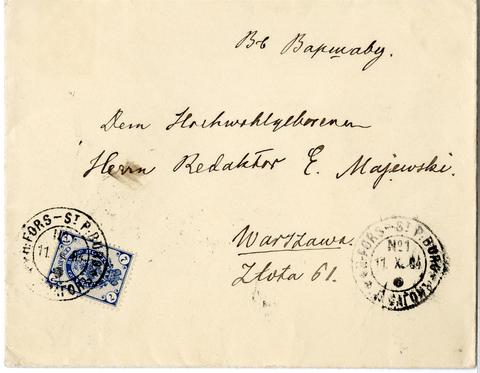 Въ Варшаву.
Dem Hochwohlgeborenen
Herrn Redaktor E. Majewski.
Warszawa
Złota 61.
H:FORS-ST P:BURG
11
7 7
H:FORS-ST P:BURG
No 1
11. X.